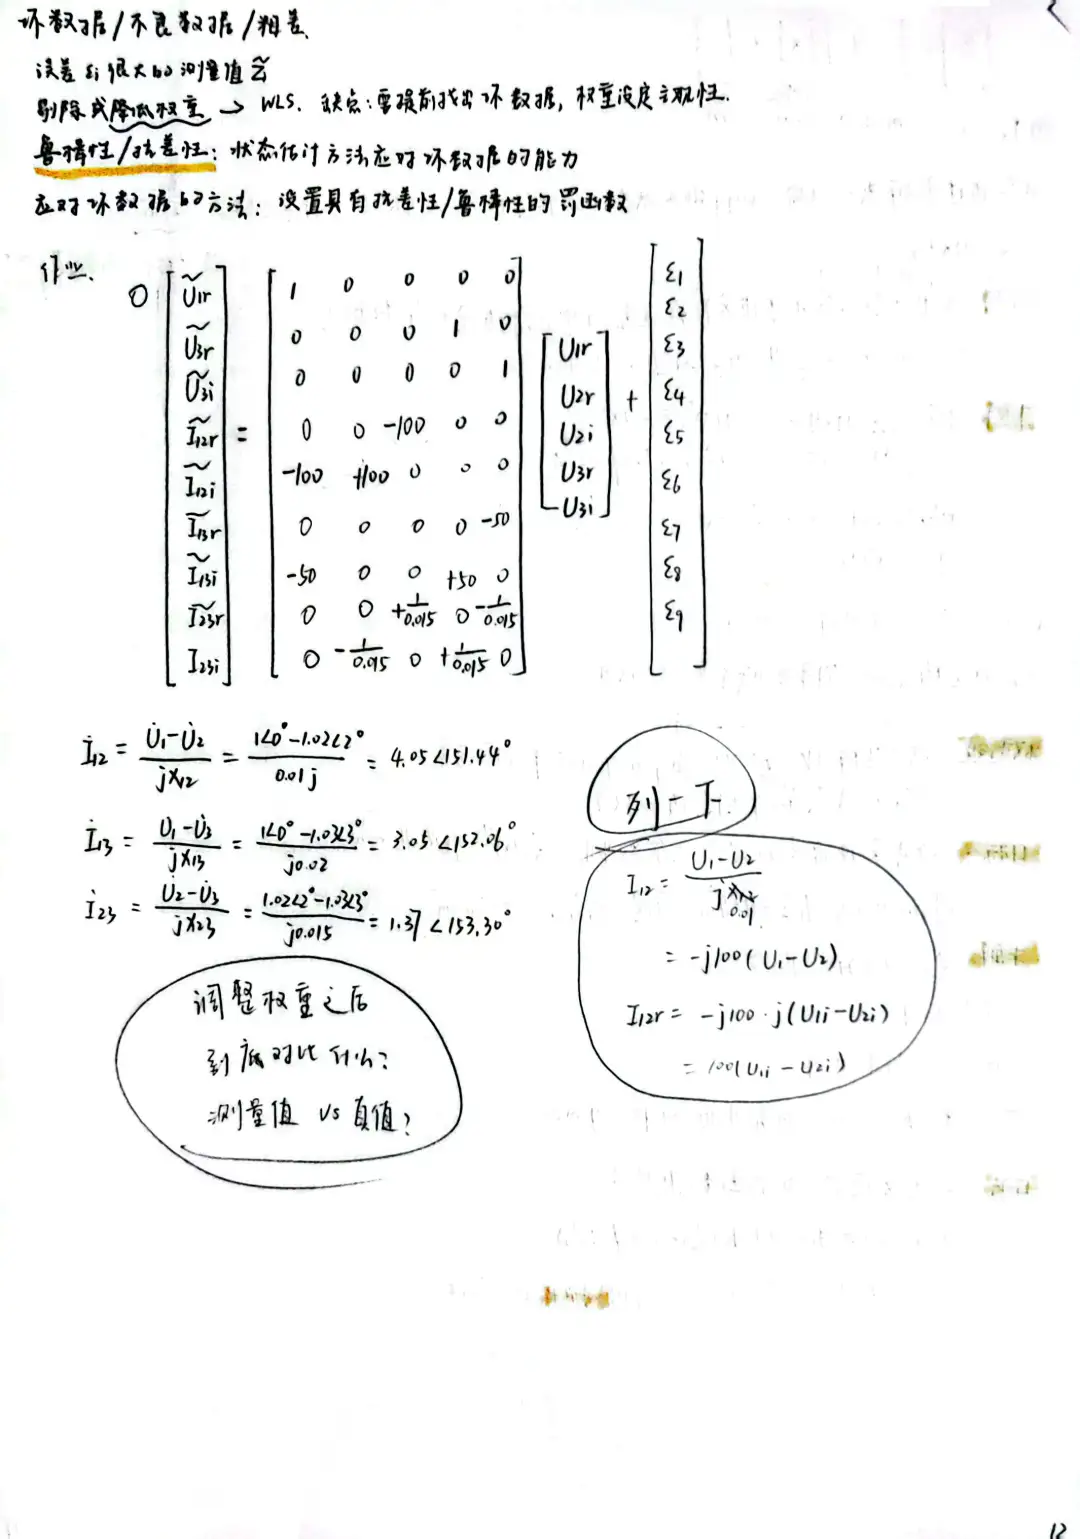 坏数据/不良数据/粗差
误差εi很大的测量值z̃
剔除或降低权重 → WLS. 缺点:需提前找出坏数据,权重设定主观性.
鲁棒性/抗差性:状态估计方法应对坏数据的能力
应对坏数据的方法:设置具有抗差性/鲁棒性的罚函数
作业.
0 [Ũ1r Ũ3r Ũ3i Ĩ12r Ĩ12i Ĩ13r Ĩ13i Ĩ23r I23i] =
1 0 0 0 0
0 0 0 1 0
0 0 0 0 1
0 0 -100 0 0
-100 +100 0 0 0
0 0 0 0 -50
-50 0 0 +50 0
0 0 +1/0.015 0 -1/0.015
0 -1/0.015 0 +1/0.015 0
[U1r U2r U2i U3r U3i] + [ε1 ε2 ε3 ε4 ε5 ε6 ε7 ε8 ε9]
İ12 = (U̇1-U̇2)/(jX12) = (1∠0°-1.02∠2°)/(0.01j) = 4.05∠151.44°
İ13 = (U̇1-U̇3)/(jX13) = (1∠0°-1.03∠3°)/(j0.02) = 3.05∠152.06°
İ23 = (U̇2-U̇3)/(jX23) = (1.02∠2°-1.03∠3°)/(j0.015) = 1.37∠153.30°
列一下
I12 = (U1-U2)/(j0.01)
= -j100(U1-U2)
I12r = -j100·j(U1i-U2i)
= 100(U1i-U2i)
调整权重之后
到底对比什么?
测量值 vs 真值?
12